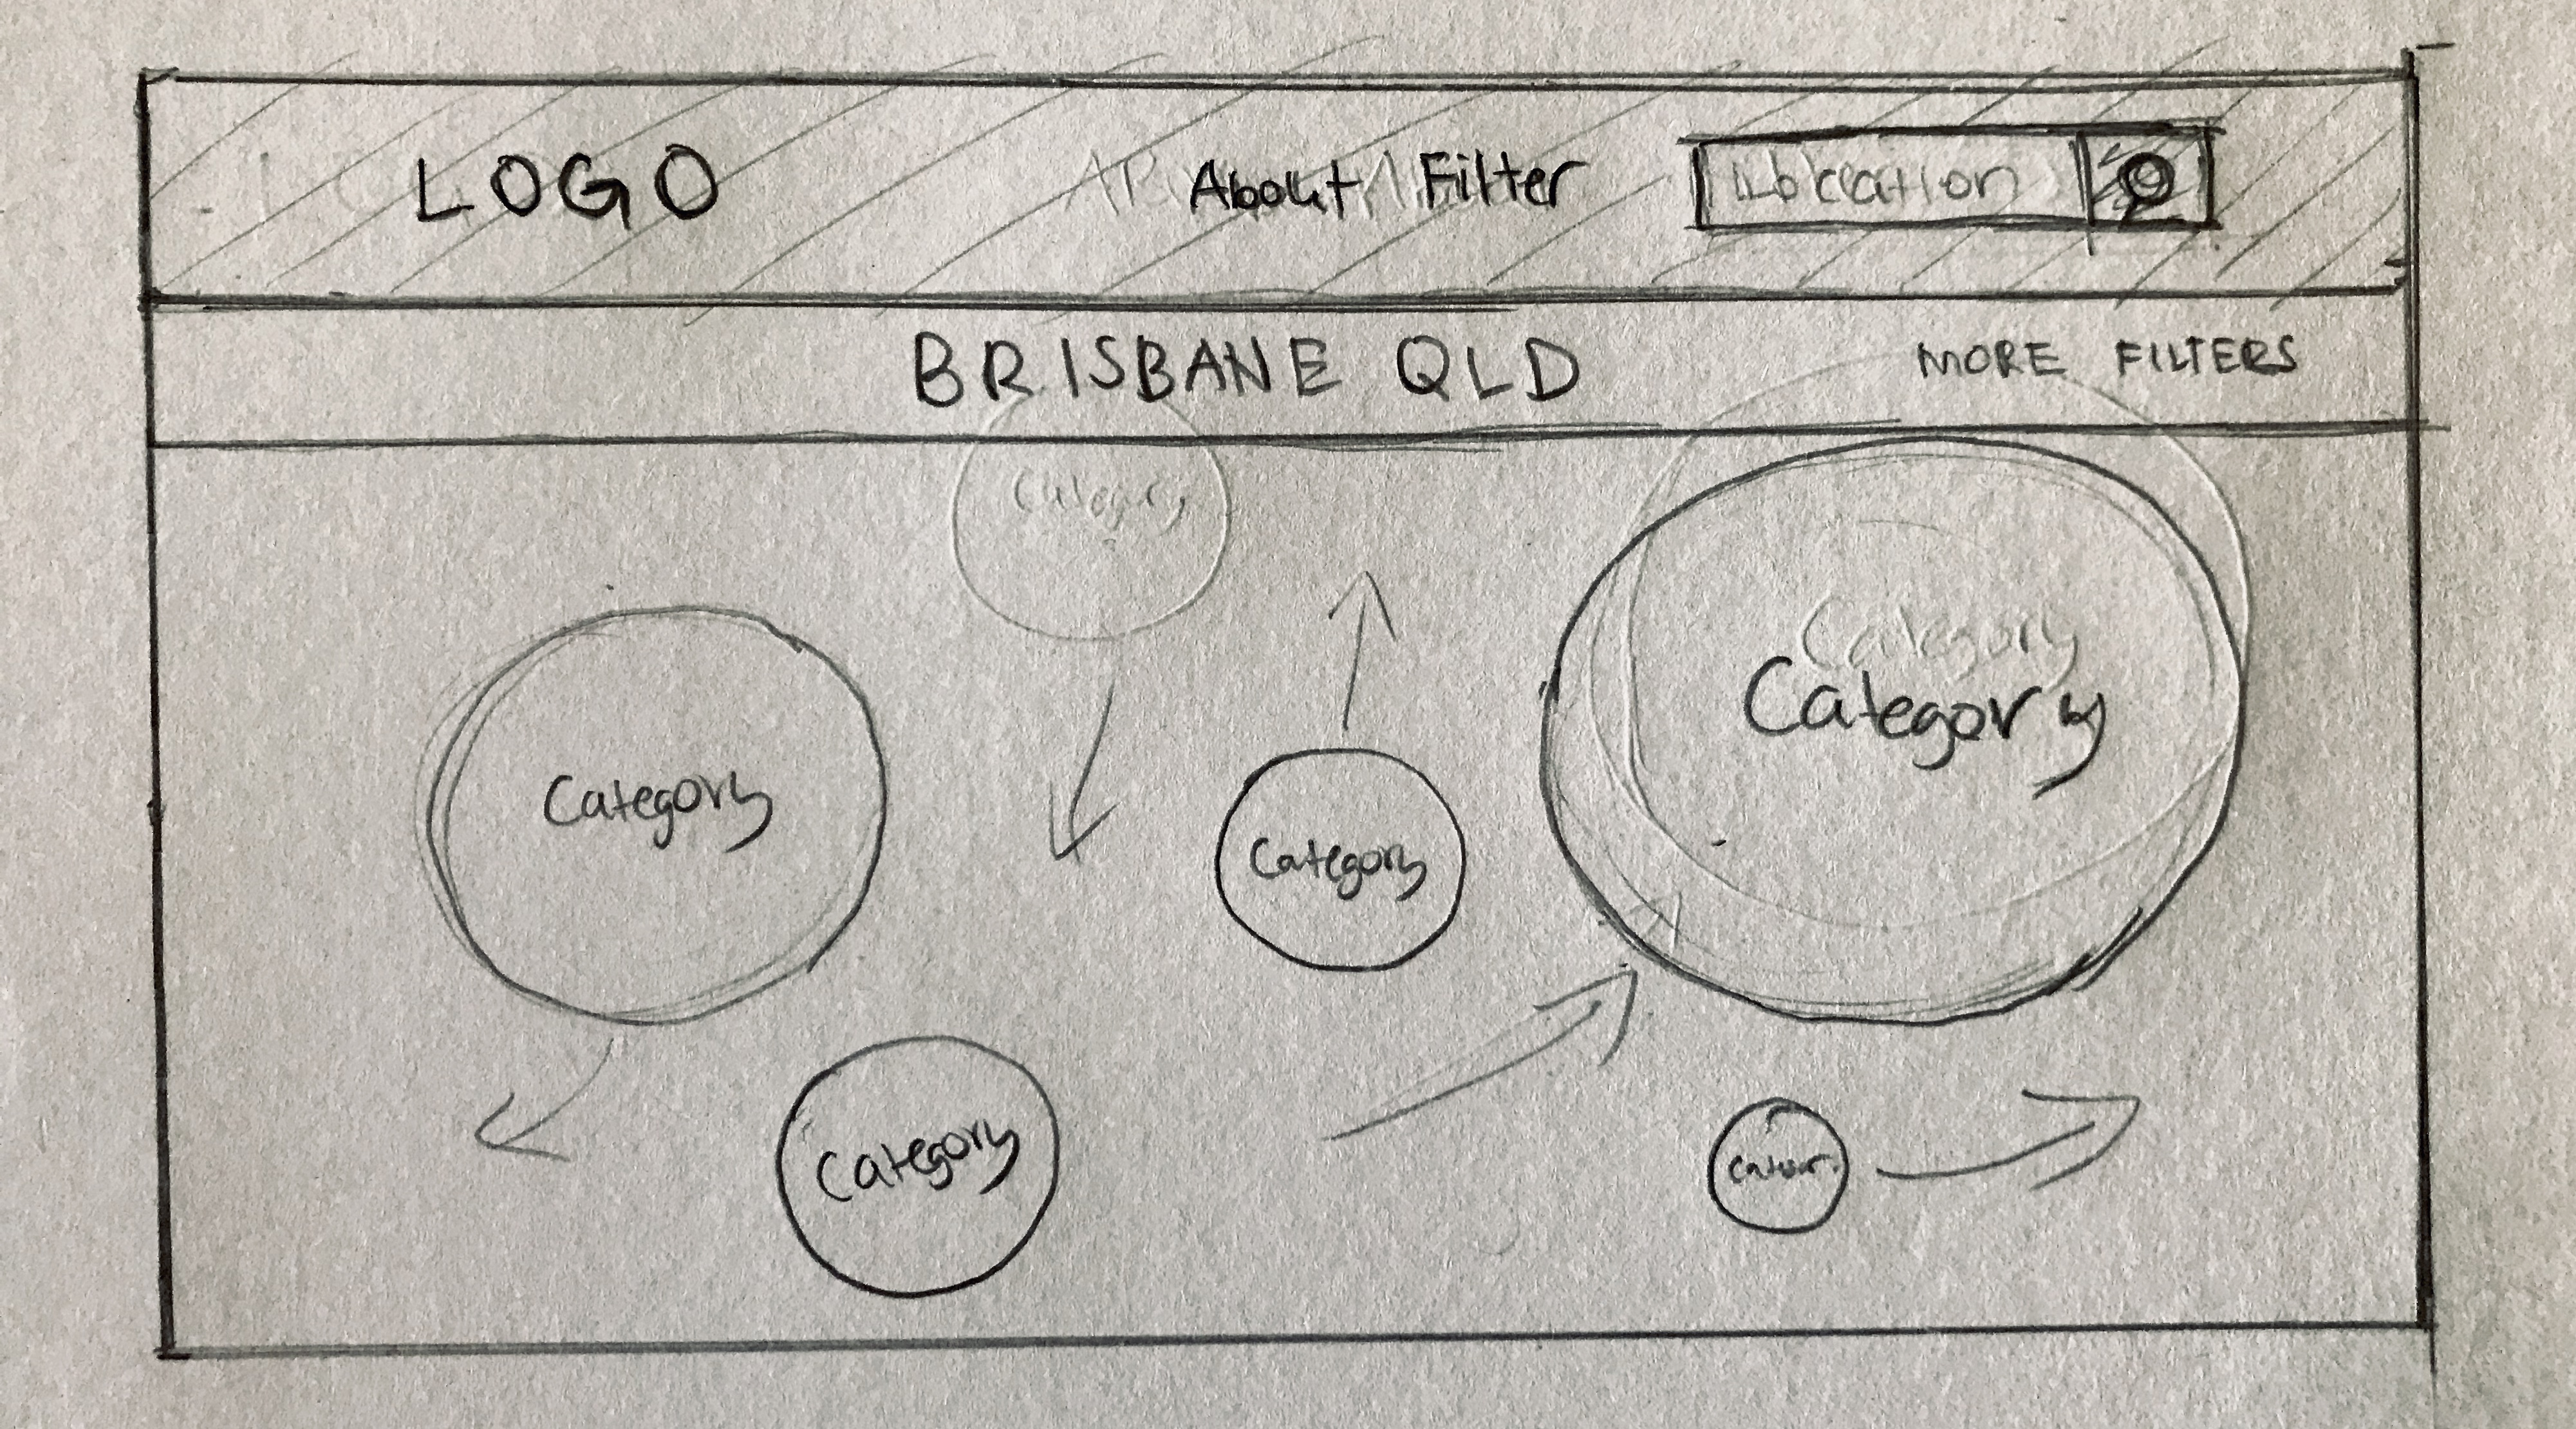 LOGO About Filter Location
BRISBANE QLD MORE FILTERS
Category
Category
Category
Category
Category
Category